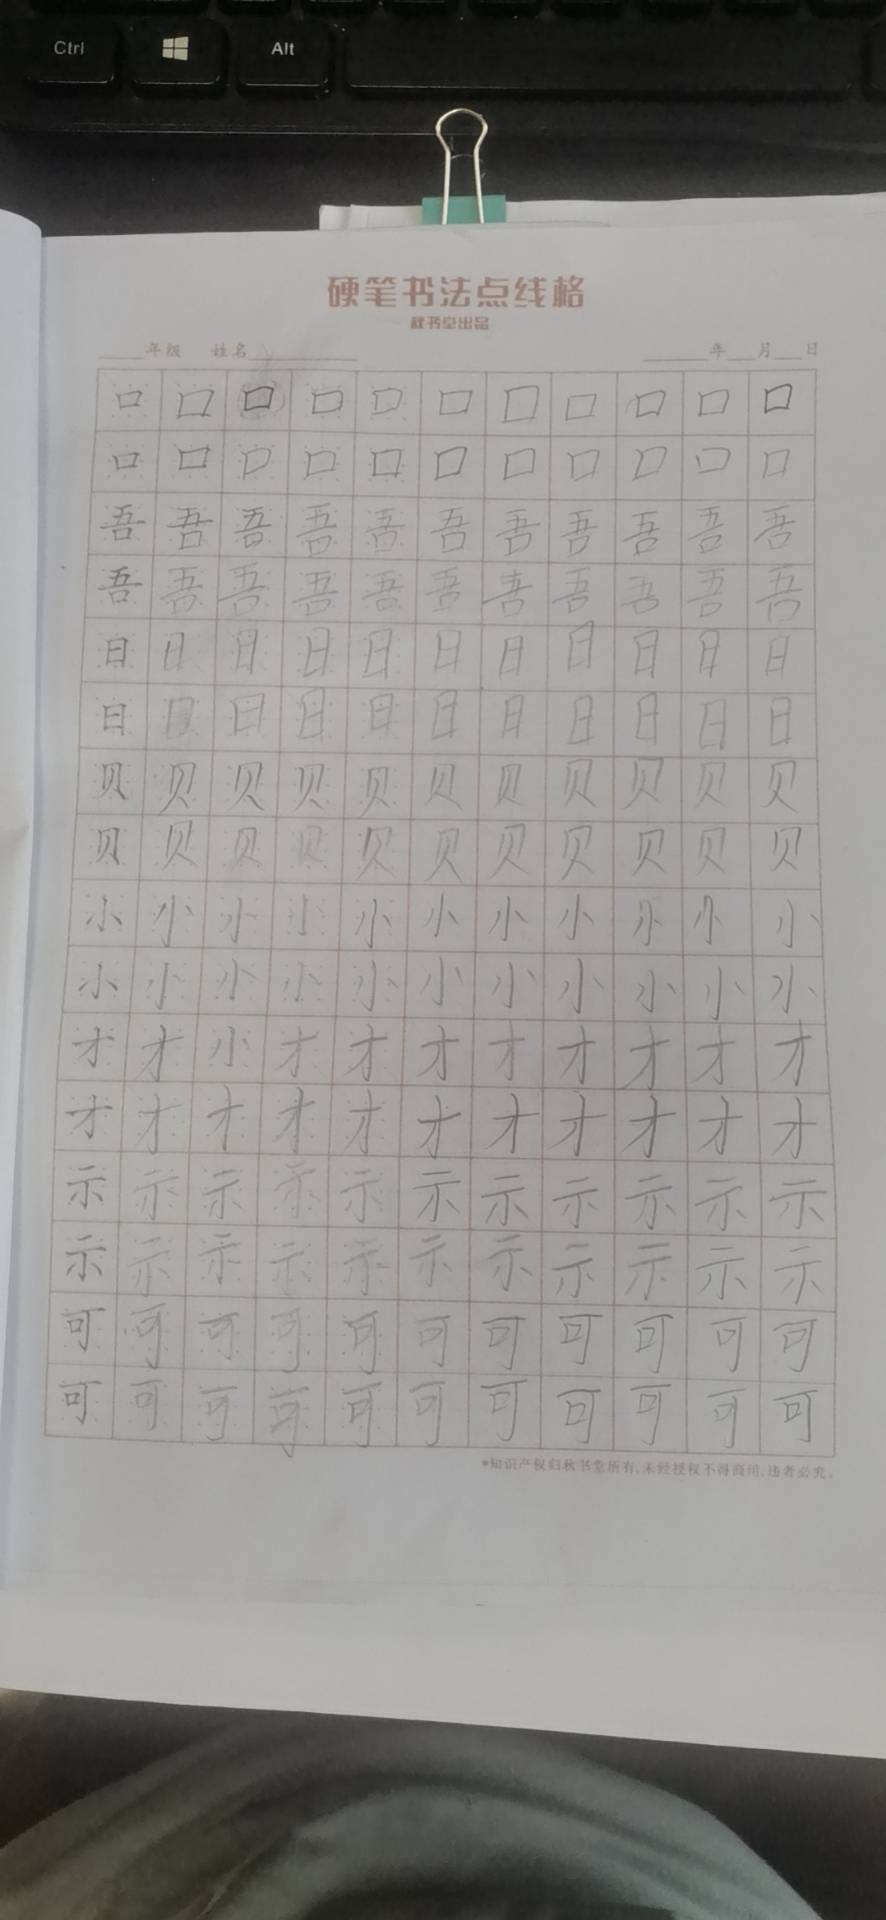 Ctrl Alt
硬笔书法点线格
秋书堂出品
____年级 姓名__________ ______年___月___日
口 口 口 口 口 口 口 口 口 口 口
口 口 口 口 口 口 口 口 口 口 口
吾 吾 吾 吾 吾 吾 吾 吾 吾 吾 吾
吾 吾 吾 吾 吾 吾 吾 吾 吾 吾 吾
日 日 日 日 日 日 日 日 日 日 日
日 日 日 日 日 日 日 日 日 日 日
贝 贝 贝 贝 贝 贝 贝 贝 贝 贝 贝
贝 贝 贝 贝 贝 贝 贝 贝 贝 贝 贝
小 小 小 小 小 小 小 小 小 小 小
小 小 小 小 小 小 小 小 小 小 小
才 才 小 才 才 才 才 才 才 才 才
才 才 才 才 才 才 才 才 才 才 才
示 示 示 示 示 示 示 示 示 示 示
示 示 示 示 示 示 示 示 示 示 示
可 可 可 可 可 可 可 可 可 可 可
可 可 可 可 可 可 可 可 可 可 可
*知识产权归秋书堂所有,未经授权不得商用,违者必究。